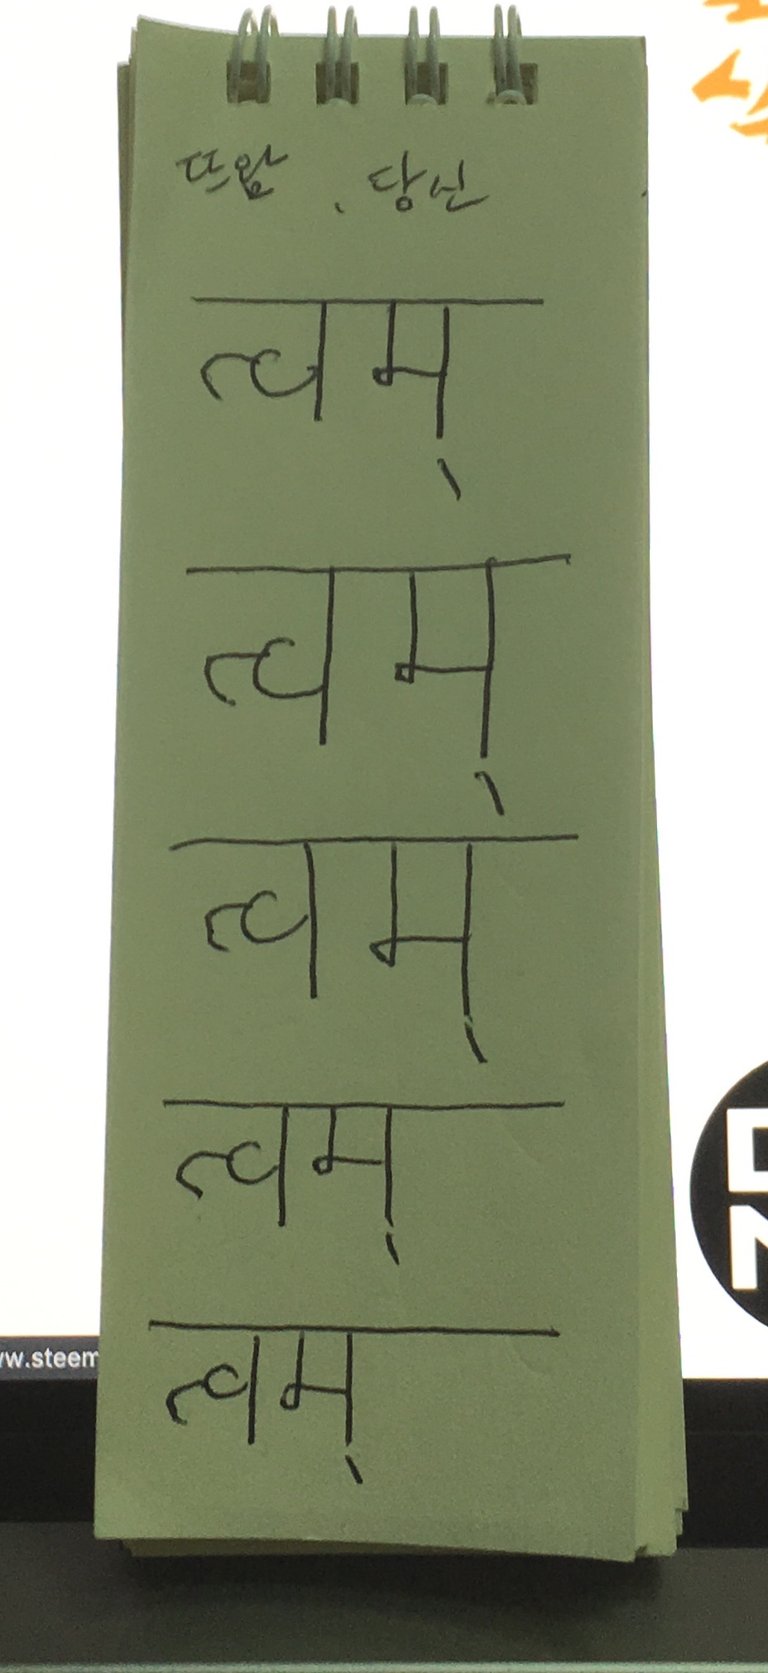 뜨왐 . 당신
त्वम्
त्वम्
त्वम्
त्वम्
त्वम्
www.steem